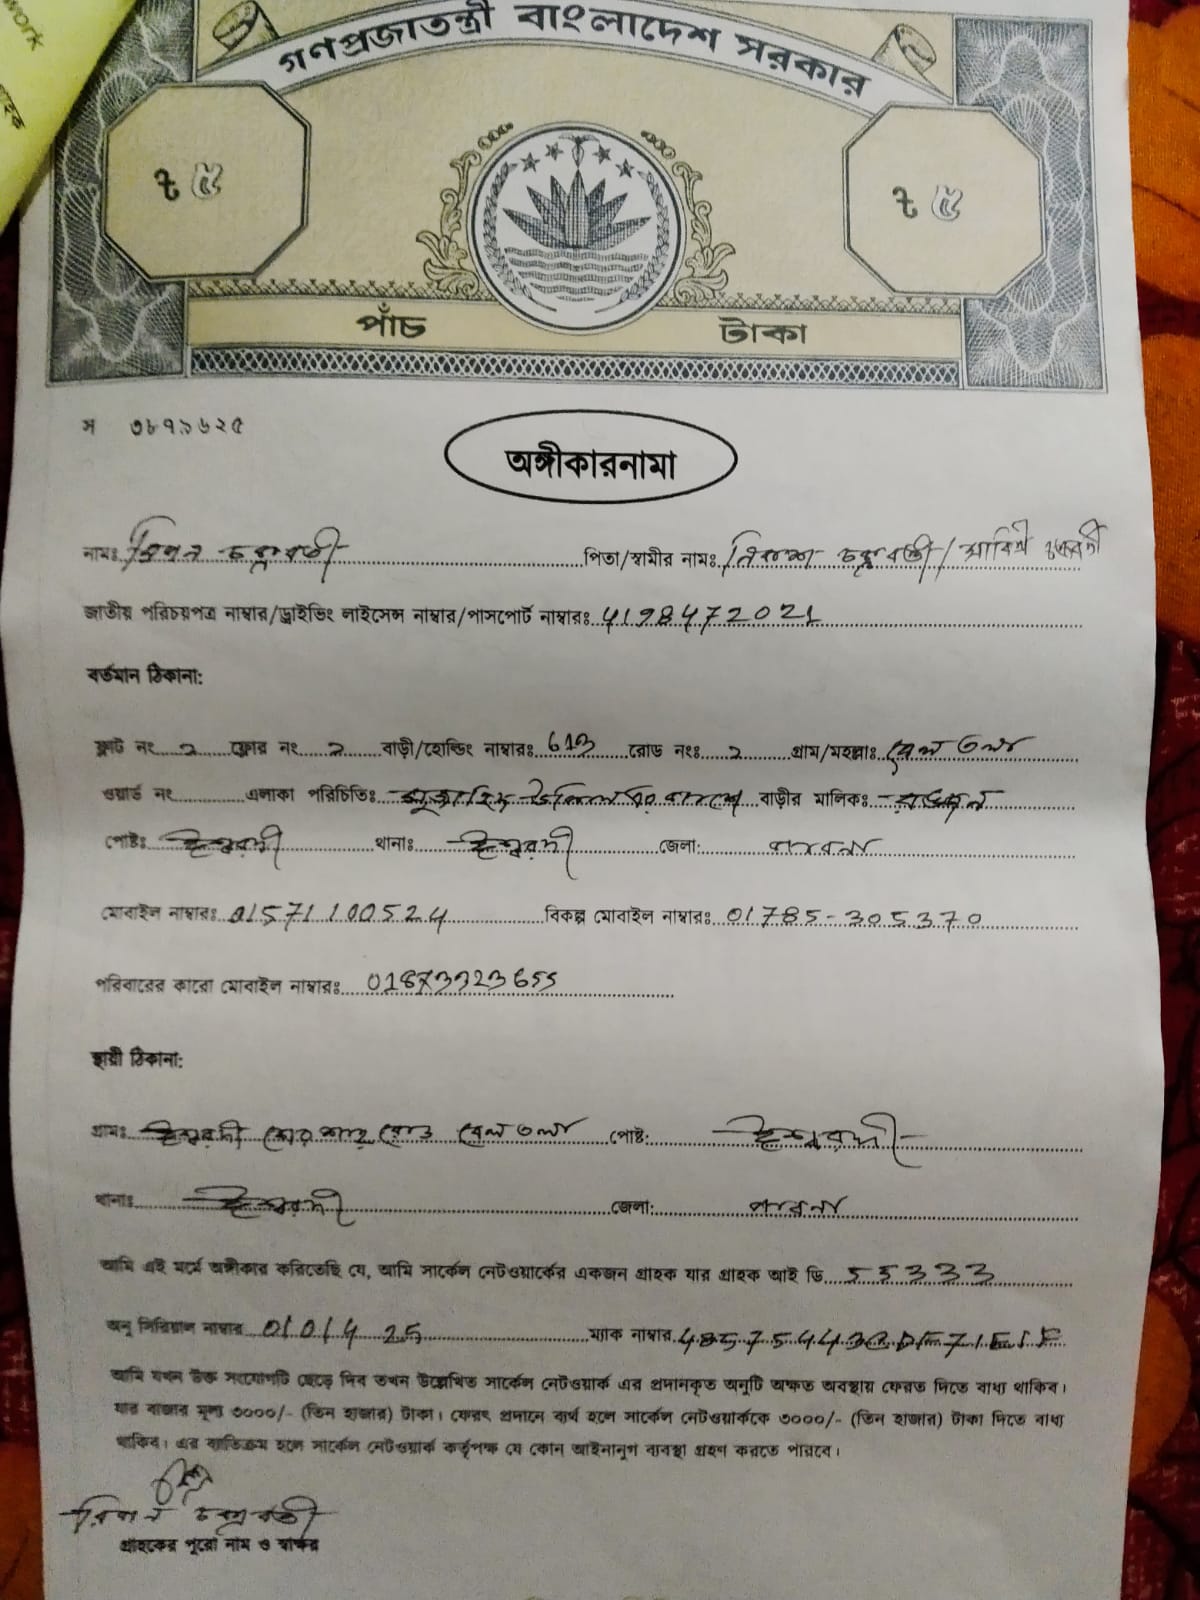 work
গ্রাহক
গণপ্রজাতন্ত্রী বাংলাদেশ সরকার
৳ ৫ ৳ ৫
পাঁচ টাকা
স ৩৮৭৯৬২৫
অঙ্গীকারনামা
নামঃ চক্রবর্তী পিতা/স্বামীর নামঃ চক্রবর্তী/ চক্রবর্তী
জাতীয় পরিচয়পত্র নাম্বার/ড্রাইভিং লাইসেন্স নাম্বার/পাসপোর্ট নাম্বারঃ 4198472021
বর্তমান ঠিকানা:
ফ্লাট নং ২ ফ্লোর নং ২ বাড়ী/হোল্ডিং নাম্বারঃ রোড নংঃ ২ গ্রাম/মহল্লাঃ বেলতলা
ওয়ার্ড নং এলাকা পরিচিতিঃ বাড়ীর মালিকঃ
পোষ্টঃ ঈশ্বরদী থানাঃ ঈশ্বরদী জেলা: পাবনা
মোবাইল নাম্বারঃ 01571100524 বিকল্প মোবাইল নাম্বারঃ 01785-305370
পরিবারের কারো মোবাইল নাম্বারঃ
স্থায়ী ঠিকানা:
গ্রামঃ ঈশ্বরদী শেরশাহ রোড বেলতলা পোষ্ট: ঈশ্বরদী
থানাঃ ঈশ্বরদী জেলা: পাবনা
আমি এই মর্মে অঙ্গীকার করিতেছি যে, আমি সার্কেল নেটওয়ার্কের একজন গ্রাহক যার গ্রাহক আই ডি 55333
অনু সিরিয়াল নাম্বার 010425 ম্যাক নাম্বার
আমি যখন উক্ত সংযোগটি ছেড়ে দিব তখন উল্লেখিত সার্কেল নেটওয়ার্ক এর প্রদানকৃত অনুটি অক্ষত অবস্থায় ফেরত দিতে বাধ্য থাকিব।
যার বাজার মূল্য ৩০০০/- (তিন হাজার) টাকা। ফেরৎ প্রদানে ব্যর্থ হলে সার্কেল নেটওয়ার্ককে ৩০০০/- (তিন হাজার) টাকা দিতে বাধ্য
থাকিব। এর ব্যতিক্রম হলে সার্কেল নেটওয়ার্ক কর্তৃপক্ষ যে কোন আইনানুগ ব্যবস্থা গ্রহণ করতে পারবে।
চক্রবর্তী
গ্রাহকের পুরো নাম ও স্বাক্ষর